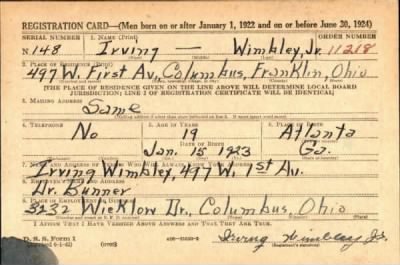 REGISTRATION CARD—(Men born on or after January 1, 1922 and on or before June 30, 1924)
SERIAL NUMBER 1. NAME (Print) ORDER NUMBER
N 148 Irving — Wimbley, Jr. 11218
2. PLACE OF RESIDENCE (Print)
497 W. First Av., Columbus, Franklin, Ohio
[THE PLACE OF RESIDENCE GIVEN ON THE LINE ABOVE WILL DETERMINE LOCAL BOARD
JURISDICTION; LINE 2 OF REGISTRATION CERTIFICATE WILL BE IDENTICAL]
3. MAILING ADDRESS
Same
4. TELEPHONE 5. AGE IN YEARS 6. PLACE OF BIRTH
No 19 Atlanta
DATE OF BIRTH
Jan. 15 1923 Ga.
7. NAME AND ADDRESS OF PERSON WHO WILL ALWAYS KNOW YOUR ADDRESS
Irving Wimbley, 497 W. 1st Av.
8. EMPLOYER'S NAME AND ADDRESS
Dr. Bunner
9. PLACE OF EMPLOYMENT OR BUSINESS
3232 Wicklow Dr., Columbus, Ohio
I AFFIRM THAT I HAVE VERIFIED ABOVE ANSWERS AND THAT THEY ARE TRUE.
D. S. S. Form 1 (over) Irving Wimbley Jr.
(Registrant's signature)